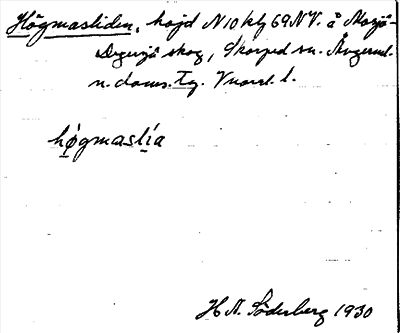 Högmasliden, höjd N 10 kly 69 NV. å Norsjö-
Degersjö skog, Skorped sn. Ångerml.
n. doms. Tg. V norrl. l.
högmaslia
H N. Söderberg 1930